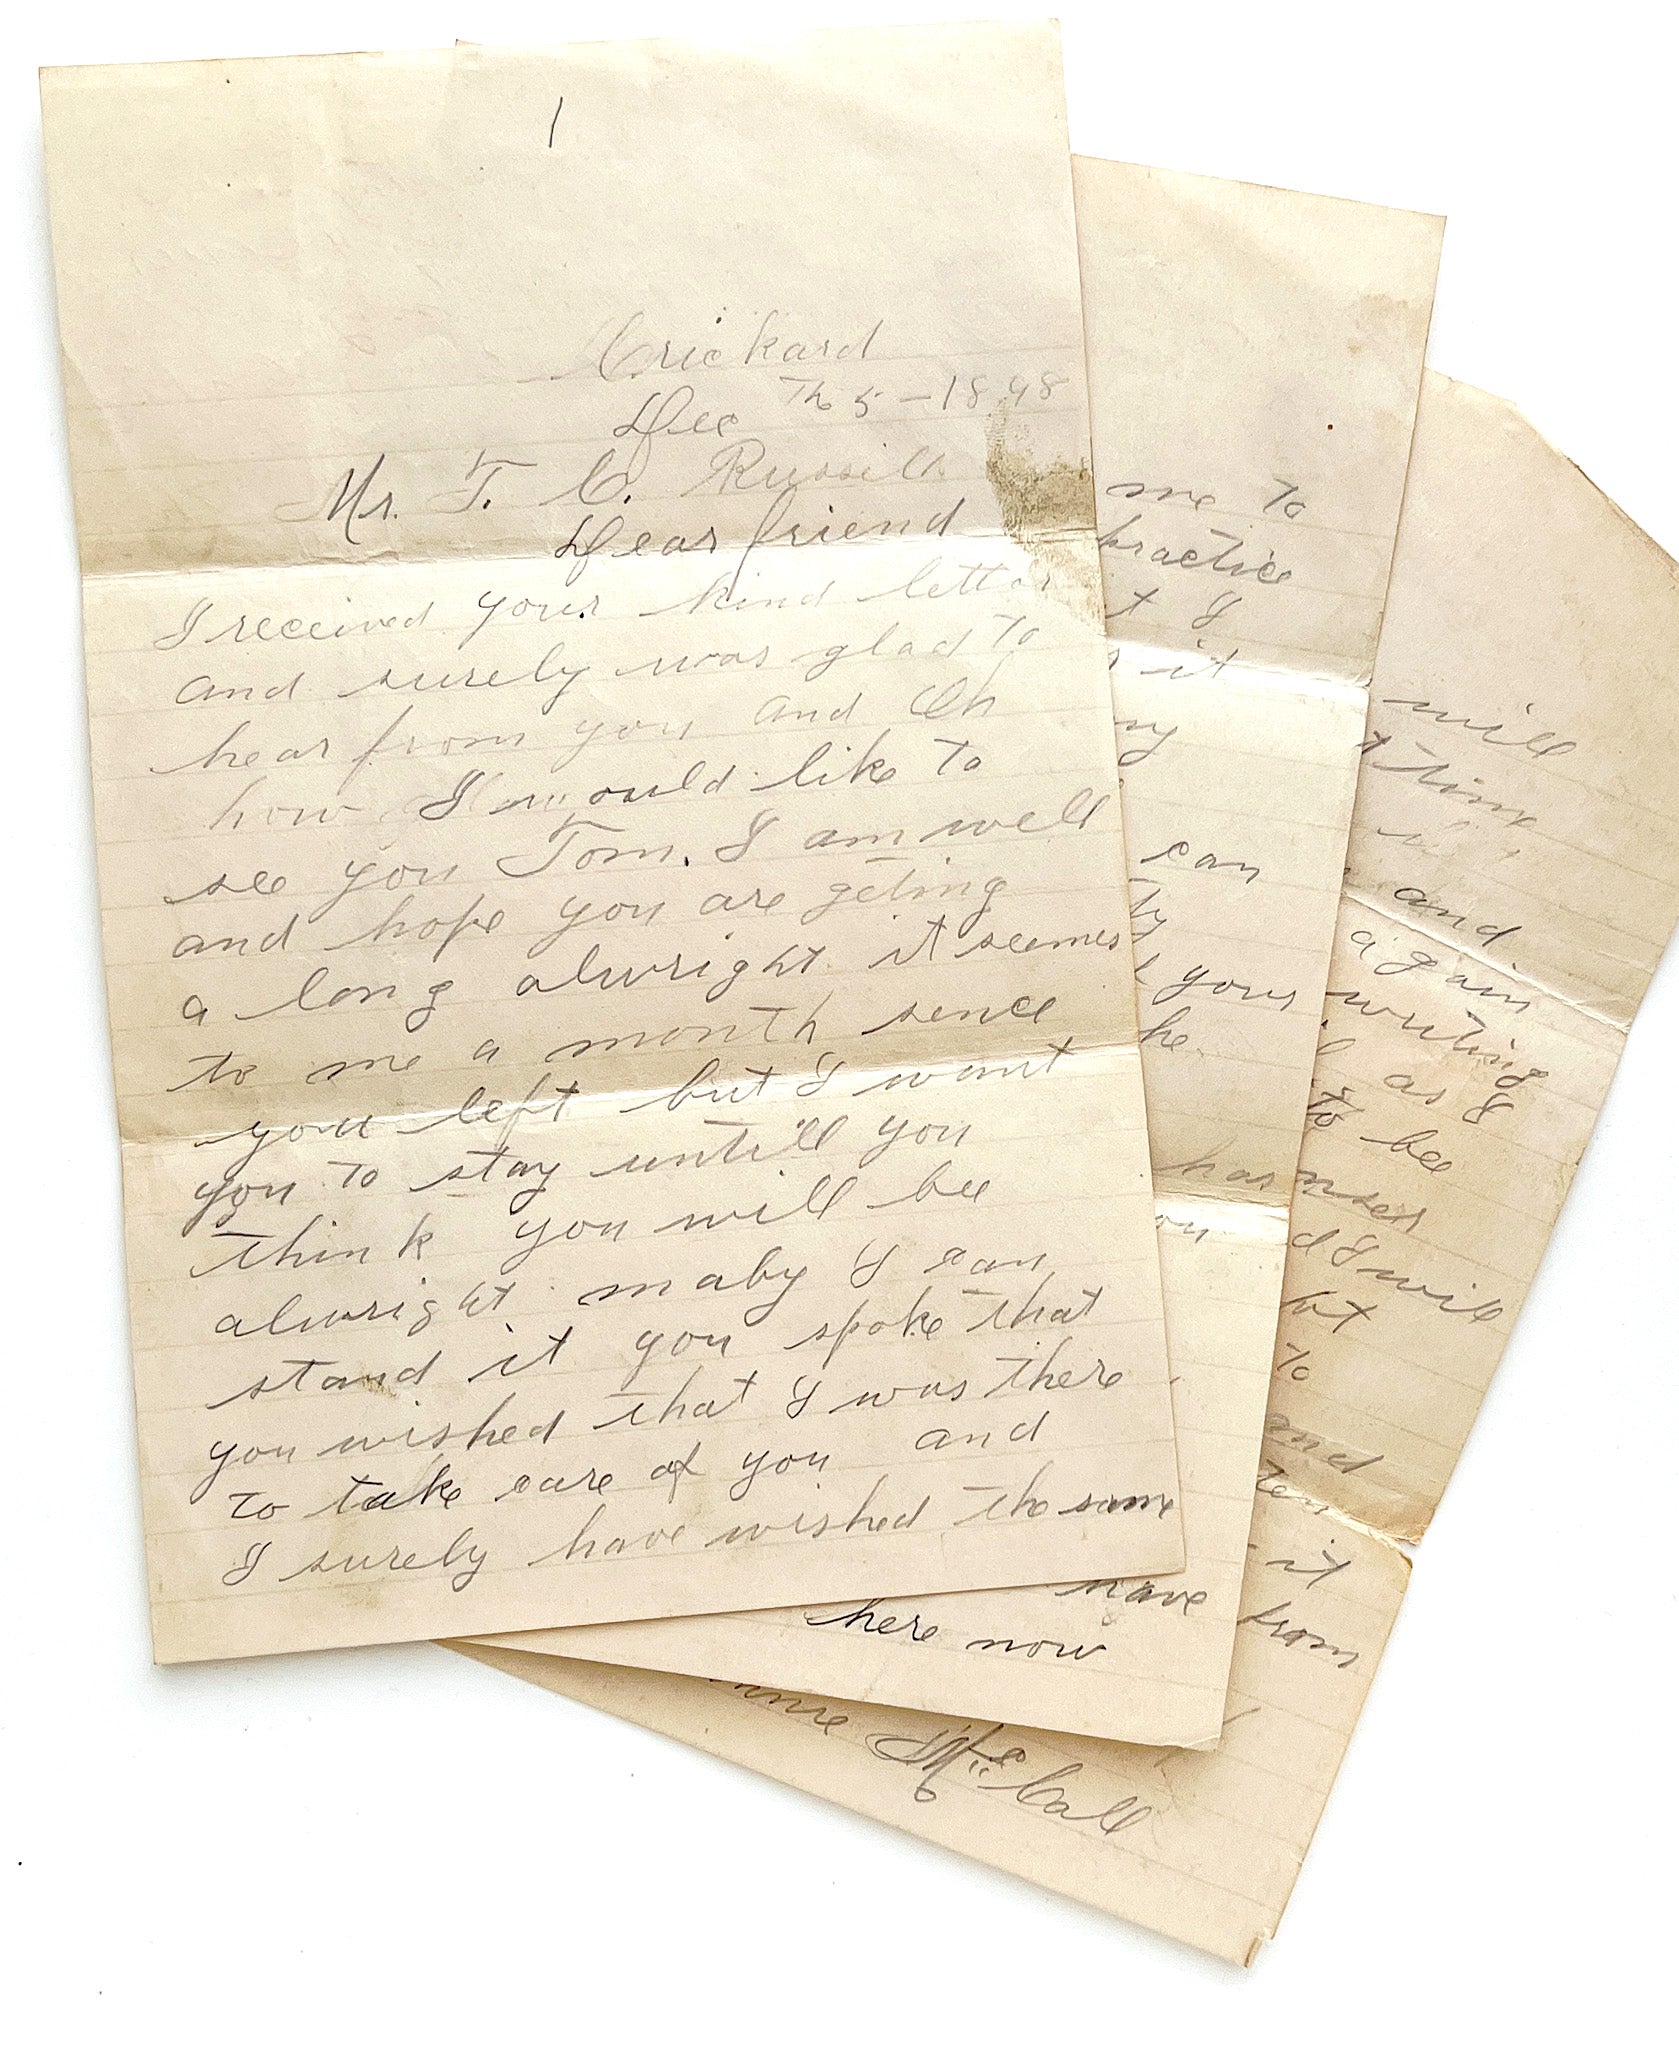 1
Crickard
Dec Th 5 - 1898
Mr. T. C. Russill
Dear friend
I received your kind letter
and surely was glad to
hear from you and Oh
how I would like to
see you Tom. I am well
and hope you are geting
a long alwright it seemes
to me a month sence
you left but I want
you to stay untill you
think you will bee
alwright maby I can
stand it you spoke that
you wished that I was there
to take care of you and
I surely have wished the same
me to
practice
t I
it
ny
can
ty
your
he
has
ou
have
here now
will
t time
and
again
writing
as I
to bee
nser
d I will
ht
to
and
ten
it
from
Mc Call